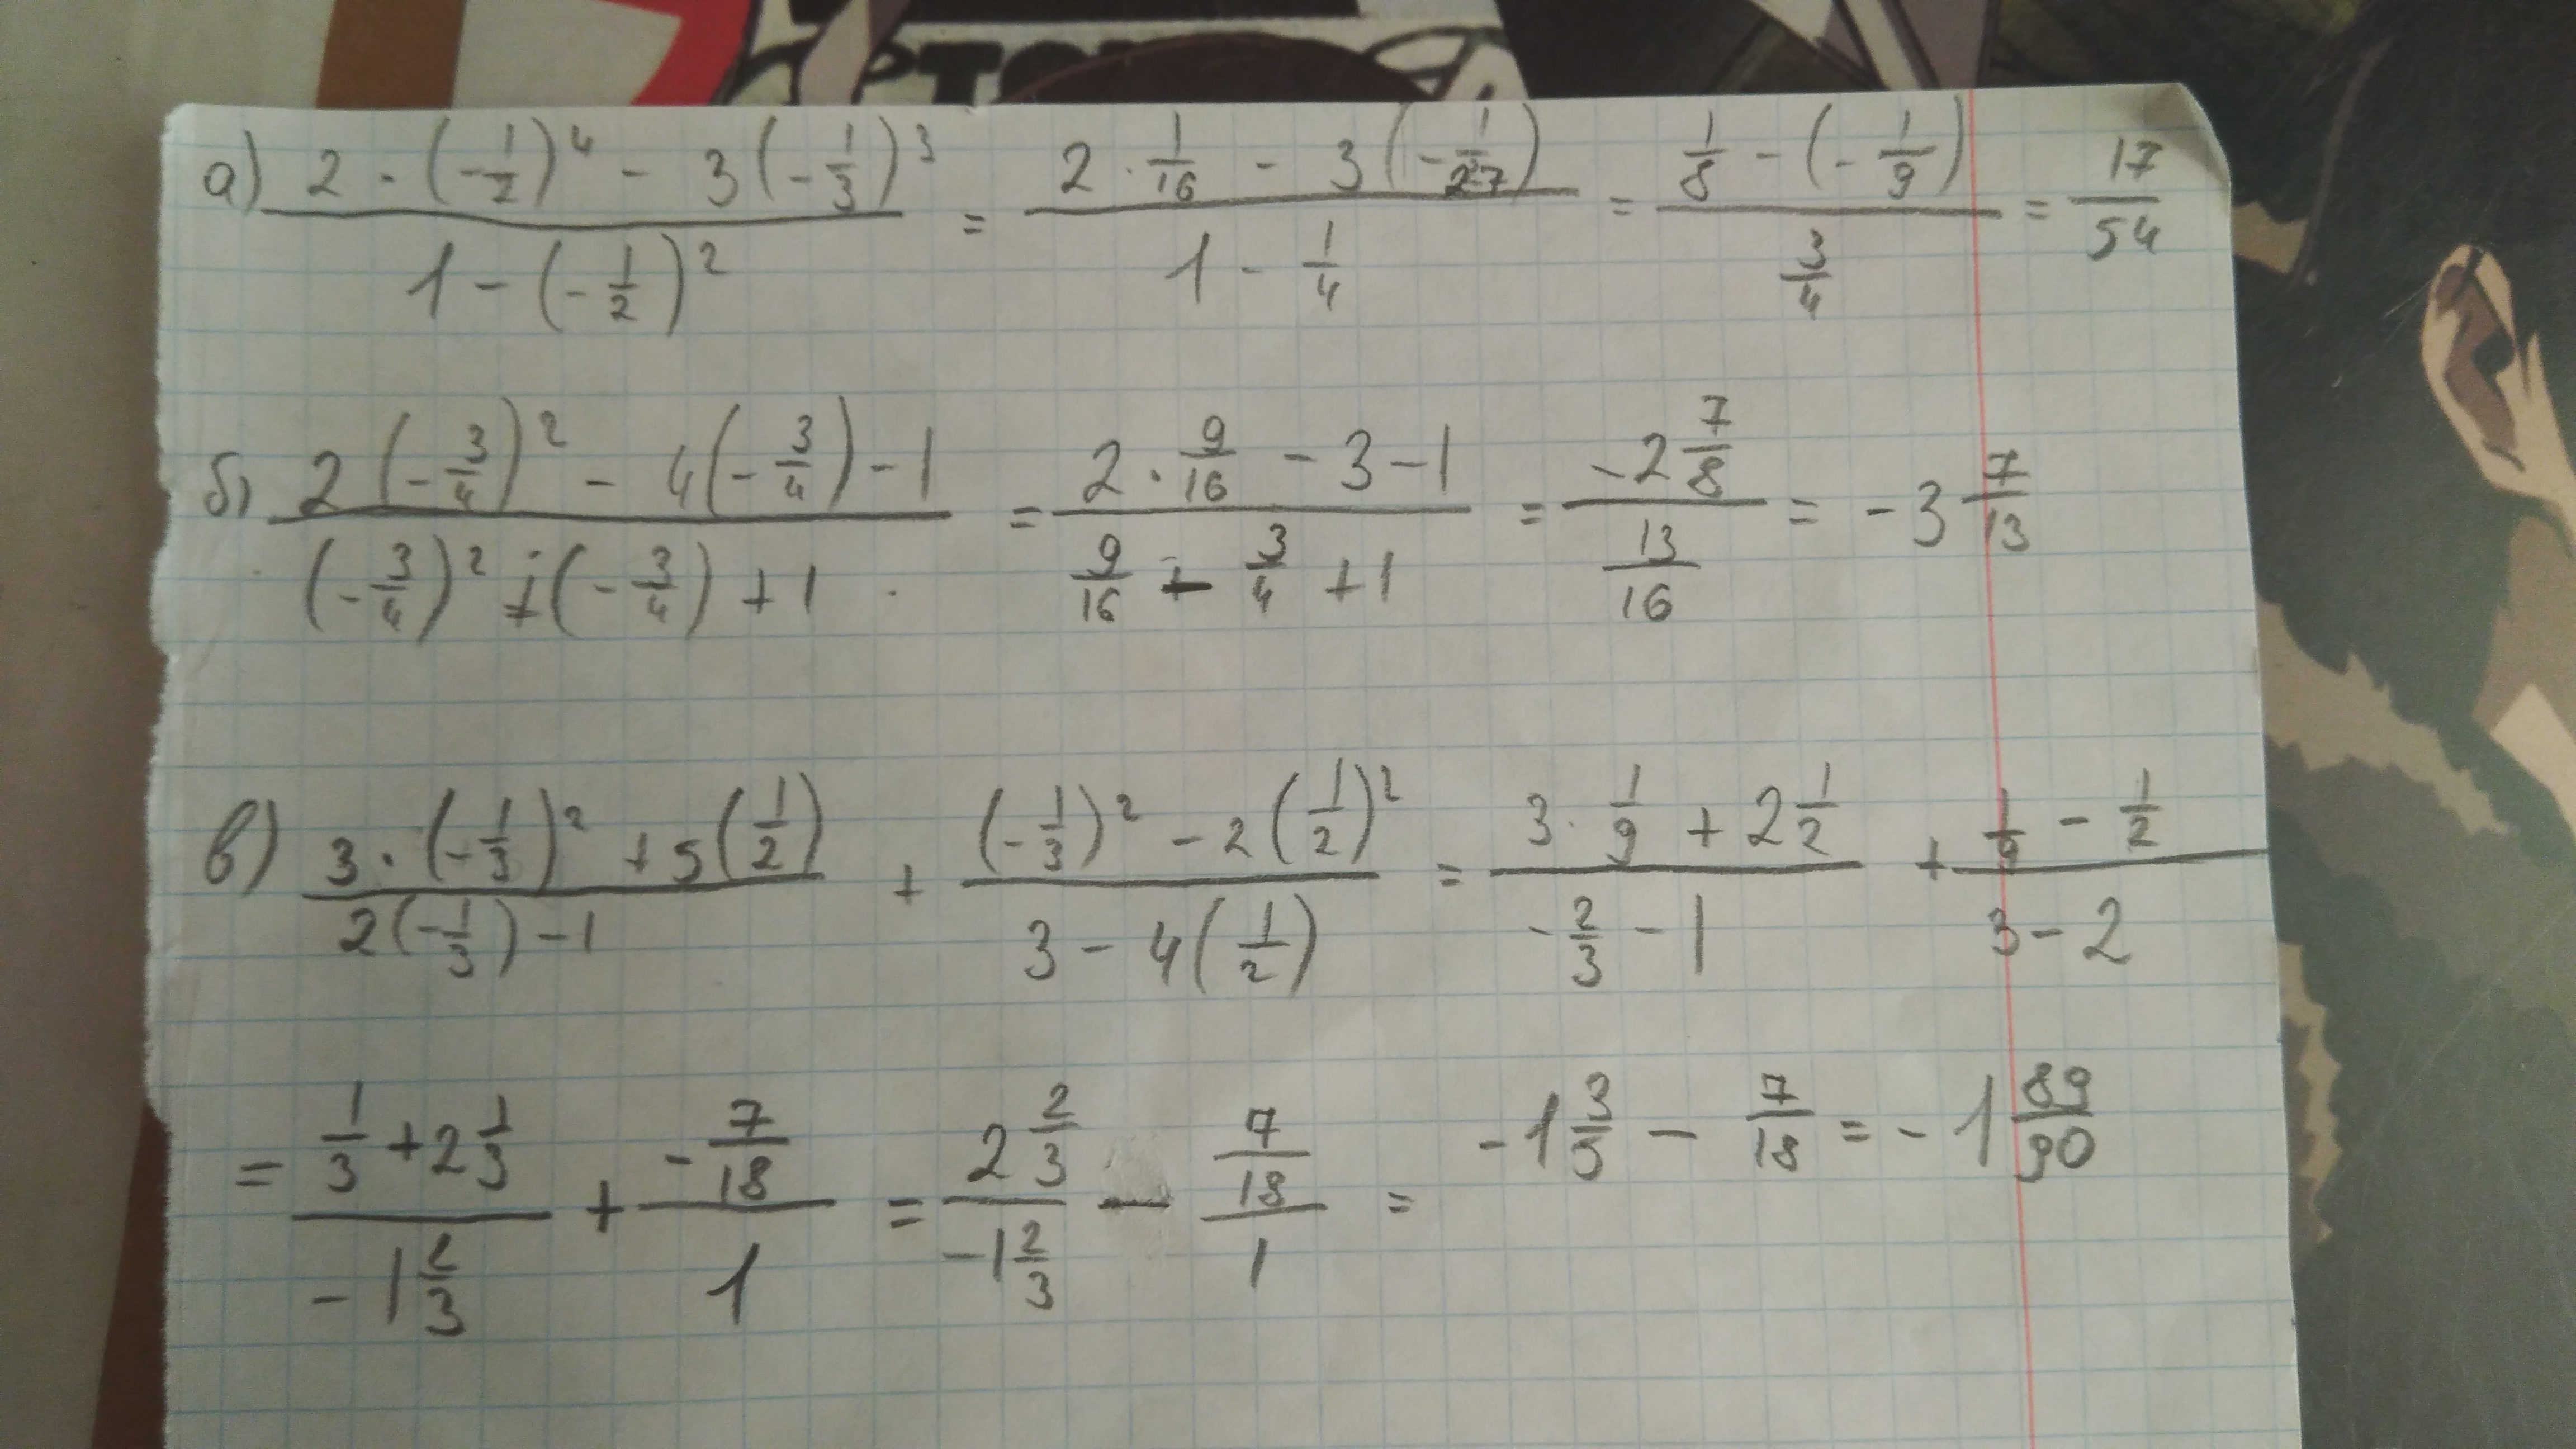 а) (2 · (-1/2)^4 - 3(-1/3)^3)/(1 - (-1/2)^2) = (2 · 1/16 - 3(-1/27))/(1 - 1/4) = (1/8 - (-1/9))/(3/4) = 17/54
б) (2(-3/4)^2 - 4(-3/4) - 1)/((-3/4)^2 + (-3/4) + 1) = (2 · 9/16 - 3 - 1)/(9/16 - 3/4 + 1) = (-2 7/8)/(13/16) = -3 7/13
в) (3 · (-1/3)^2 + 5(1/2))/(2(-1/3) - 1) + ((-1/3)^2 - 2(1/2)^2)/(3 - 4(1/2)) = (3 · 1/9 + 2 1/2)/(-2/3 - 1) + (1/9 - 1/2)/(3 - 2)
= (1/3 + 2 1/3)/(-1 2/3) + (-7/18)/1 = (2 2/3)/(-1 2/3) - (7/18)/1 = -1 3/5 - 7/18 = -1 89/90